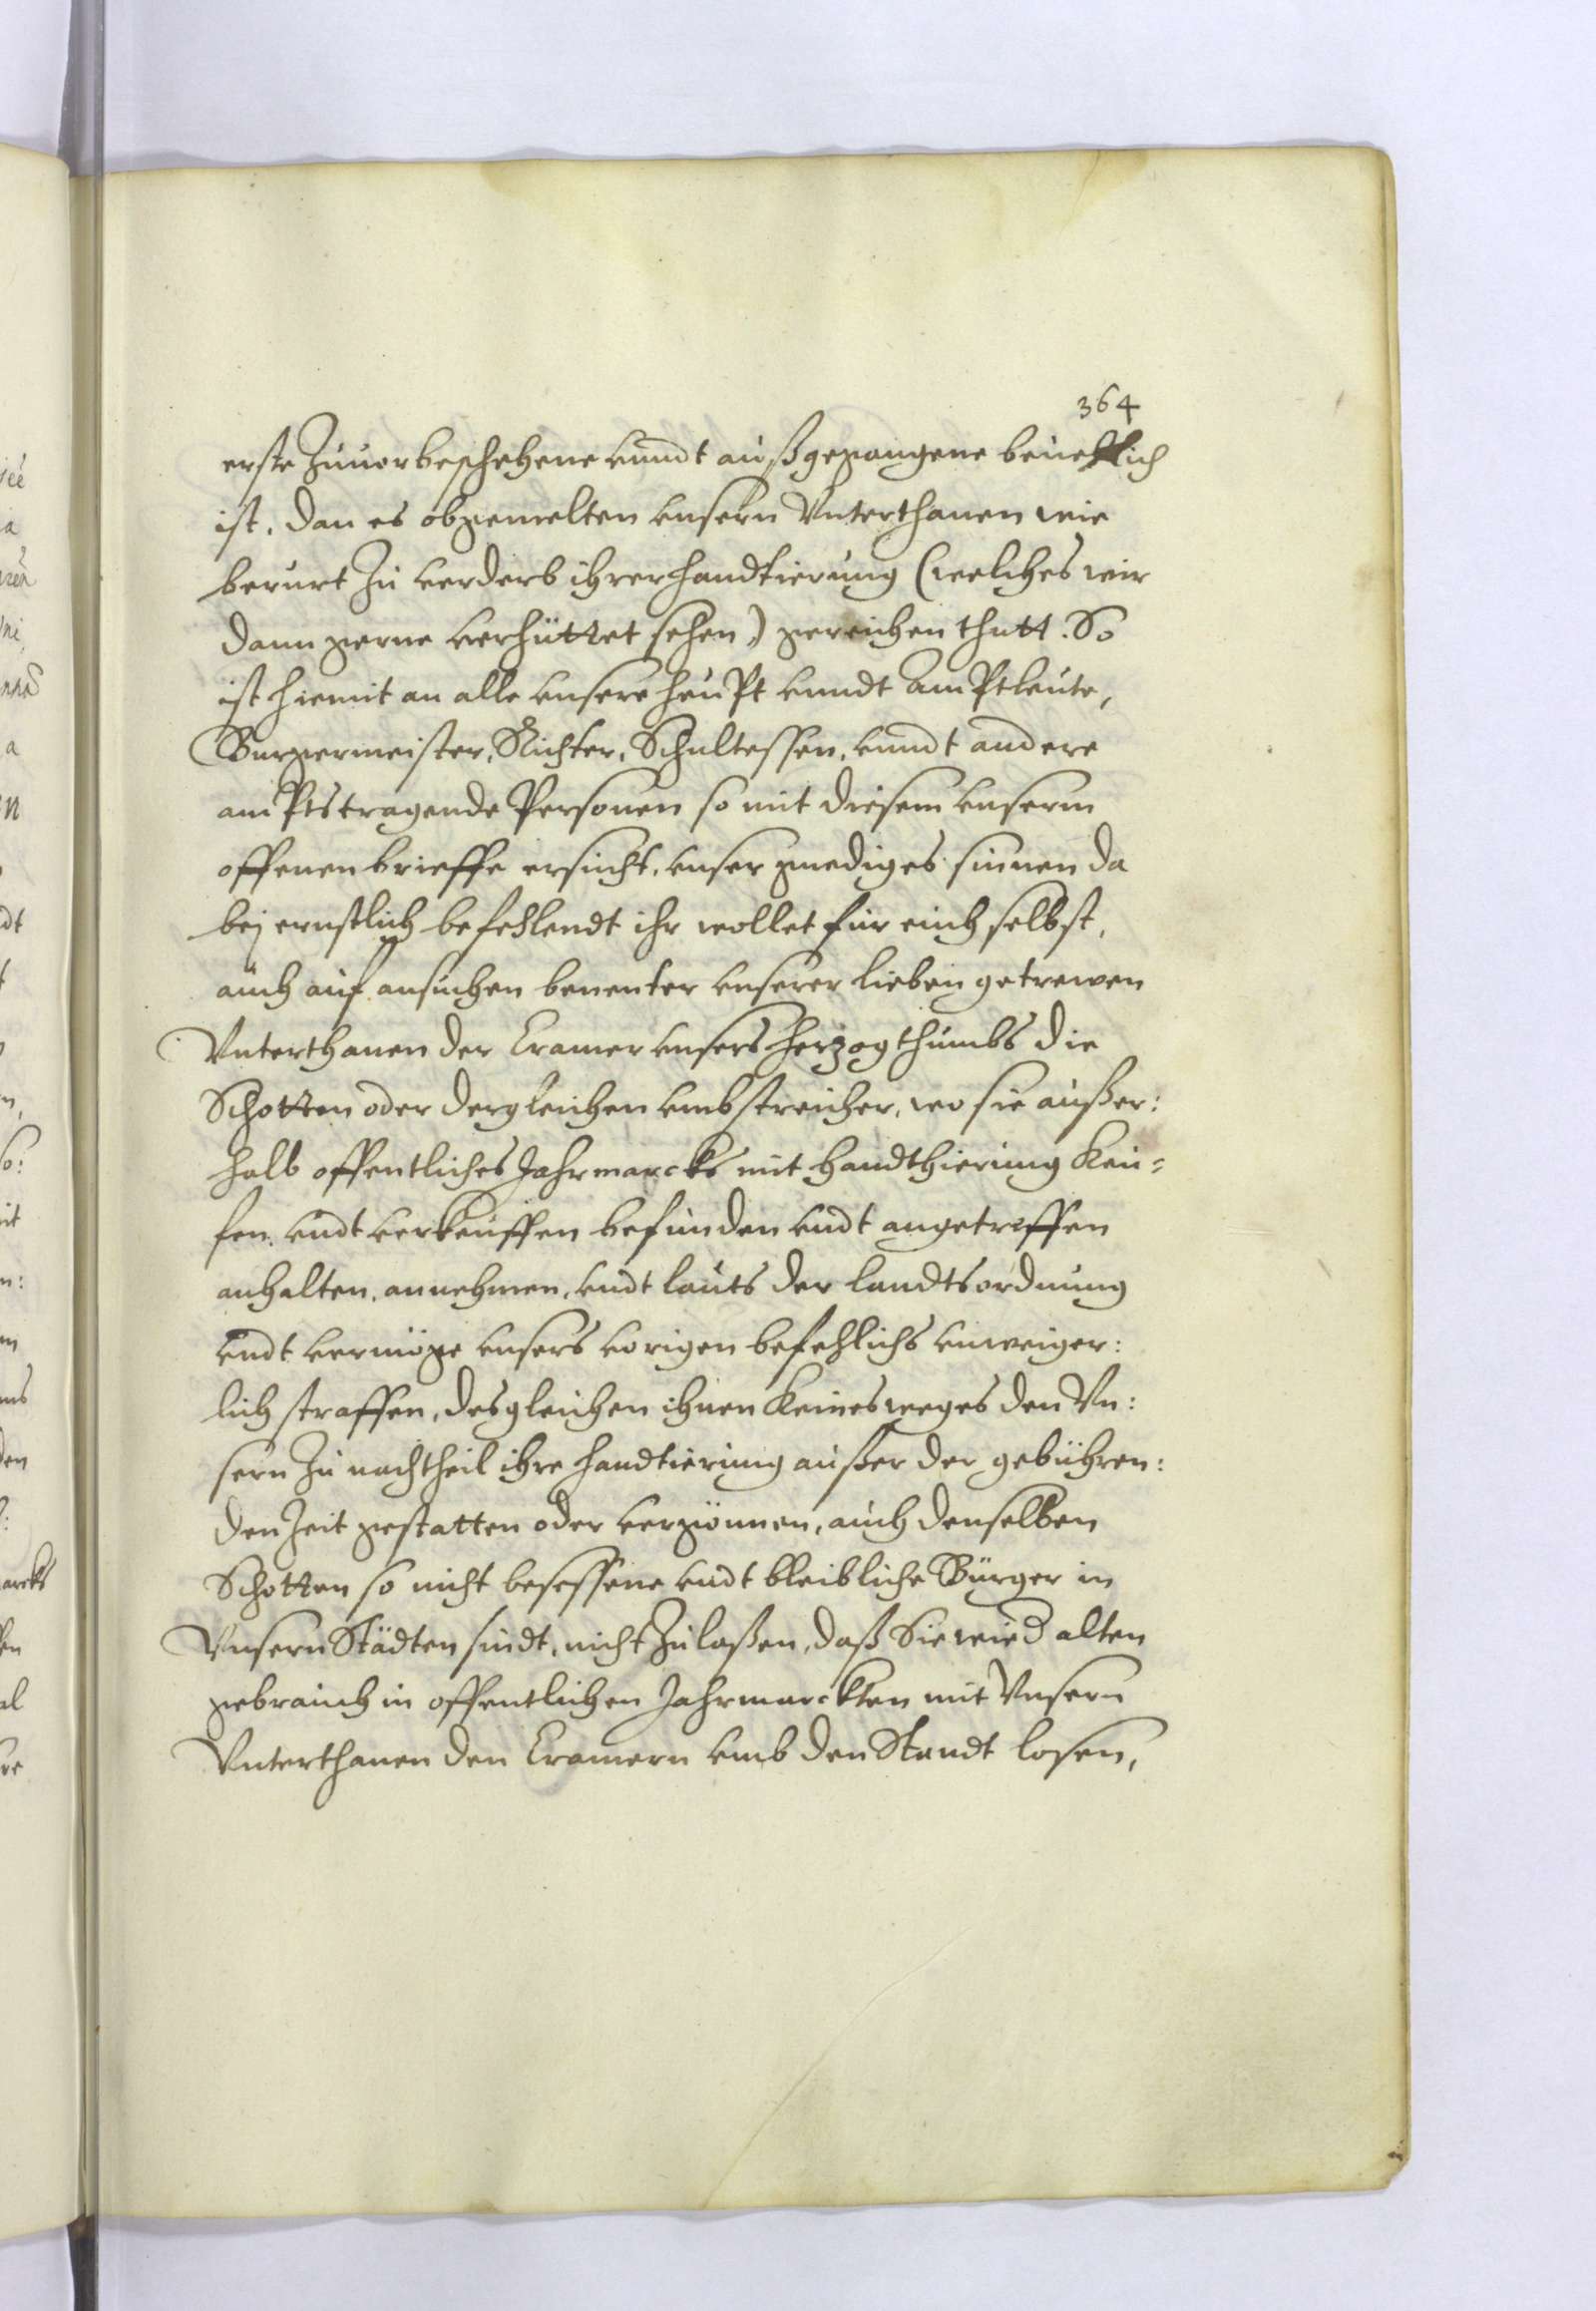 364
erste zuuor beschehene vnndt außgegangene beuehlich
ist. Dan es obgemelten vnsern Vnterthanen wie
berurt zu verderb ihrer handtierung (welches wir
dann gerne verhüttet sehen) gereichen thutt. So
ist hiemit an alle vnsere heuPt vnndt AmPtleute,
Burgermeister, Richter, Schultessen, vnndt andere
amPts tragende Personen so mit diesem vnserm
offenen brieffe ersucht, vnser gnediges sinnen da
bej ernstlich befehlendt ihr wollet fur euch selbst,
auch auf ansuchen benenter vnserer lieben getrewen
Vnterthanen der Cramer vnsers herzogthumbs die
Schotten oder dergleichen vmbstreicher, wo sie außer:
halb offentliches Jahrmarcks mit handthierung Keu=
fen vndt verkeuffen befunden vndt angetroffen
anhalten, annehmen, vndt lauts der landtsordnung
vndt vermöge vnsers vorigen befehlichs vnweiger:
lich straffen, desgleichen ihnen Keinesweges den Vn:
sern zu nachtheil ihre handtierung außer der gebühren:
den Zeit gestatten oder vergönnen, auch denselben
Schotten so nicht besessene vndt bleibliche Bürger in
Vnsern Städten sindt, nicht zulaßen, daß Sie wied alten
gebrauch in offentlichen Jahrmarckten mit Vnsern
Vnterthanen den Cramern vmb den Standt losen,